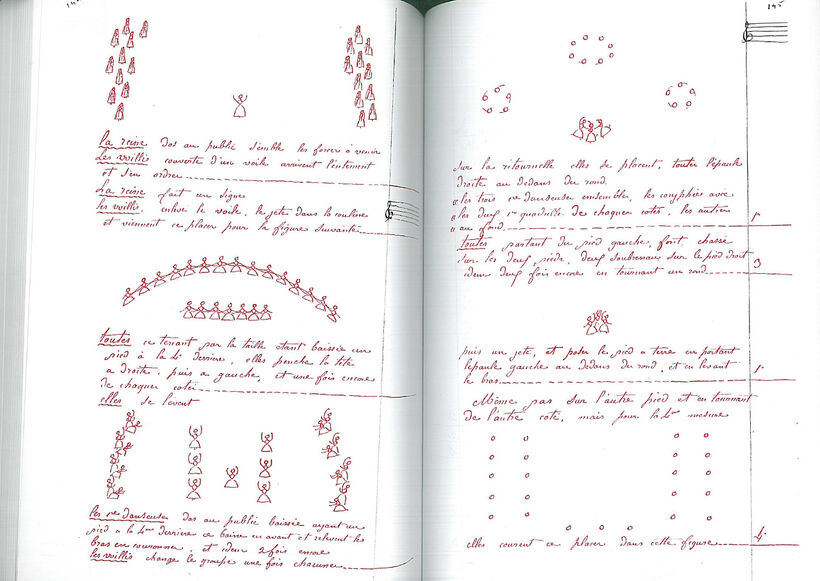 La reine dos au public semble les forcer à venir
Les willis couverte d'un voile arrivent lentement
et sen ordre
La reine fait un signe
les willis, enleve le voile, le jete dans la couline
et viennent ce placer pour la figure suivante
toutes ce tenant par la taille étant baissée un
pied à la 4e derriere, elles penche la tête
a droite, puis a gauche, et une fois encore
de chaquer coté
elles se levent
les 1re danseuse dos au public baissée ayant un
pied a la 4me derriere ce baisse en avant et relevent les
bras en couronne, et idem 2 fois encore
les willis change le groupe une fois chacune
145
Sur la ritournelle elles se placent, toutes l'épaule
droite au dedans du rond.
"les trois 1re danseuse ensemble, les coryphées avec
"les deux 1er quadrille de chaquer cotés, les autres
"au fond
1.
toutes partant du pied gauche, font, chassé
sur les deux pieds, deux soubresau sur le pied droit
3
idem deux fois encore en tournant un rond
puis un jeté, et poser le pied a terre en portant
l'épaule gauche au dedans du rond, et en levant
1.
le bras
Même pas sur l'autre pied et en tournant
de l'autre coté, mais pour la 4me mesure
4.
elles courent ce placer dans cette figure